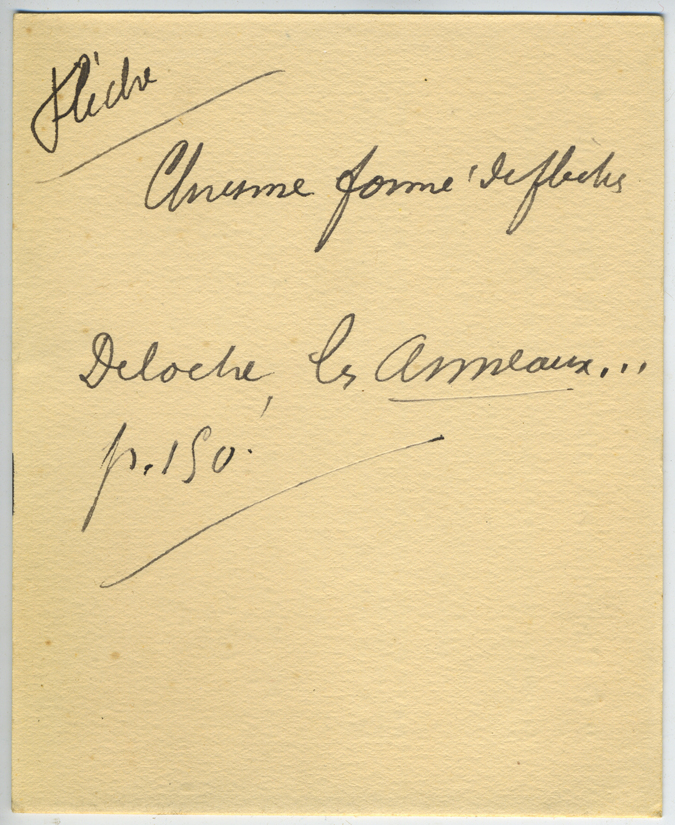 Flèche
Chrisme formé de flèches
Deloche, les Anneaux...
p. 150.